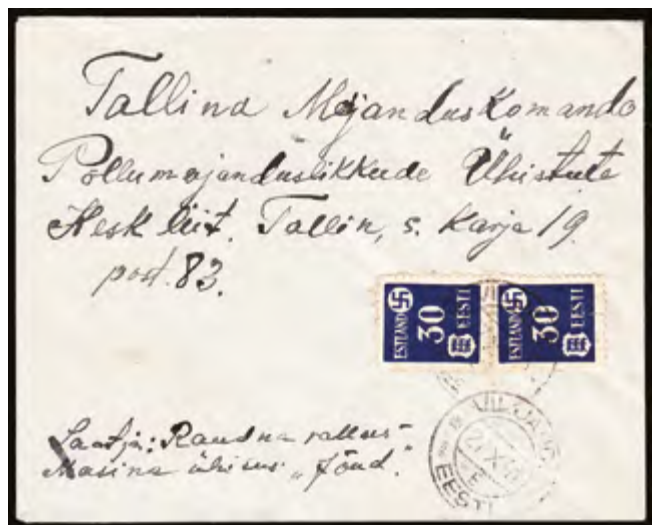 Tallina Majanduskomando
Põllumajanduslikkude Ühistute
Keskliit, Tallin, s. Karja 19.
post. 83.
ESTLAND
30
EESTI
ESTLAND
30
EESTI
VILJANDI
EESTI
Saatja: Raudna rallus-
Masina ühisus „Jõud".